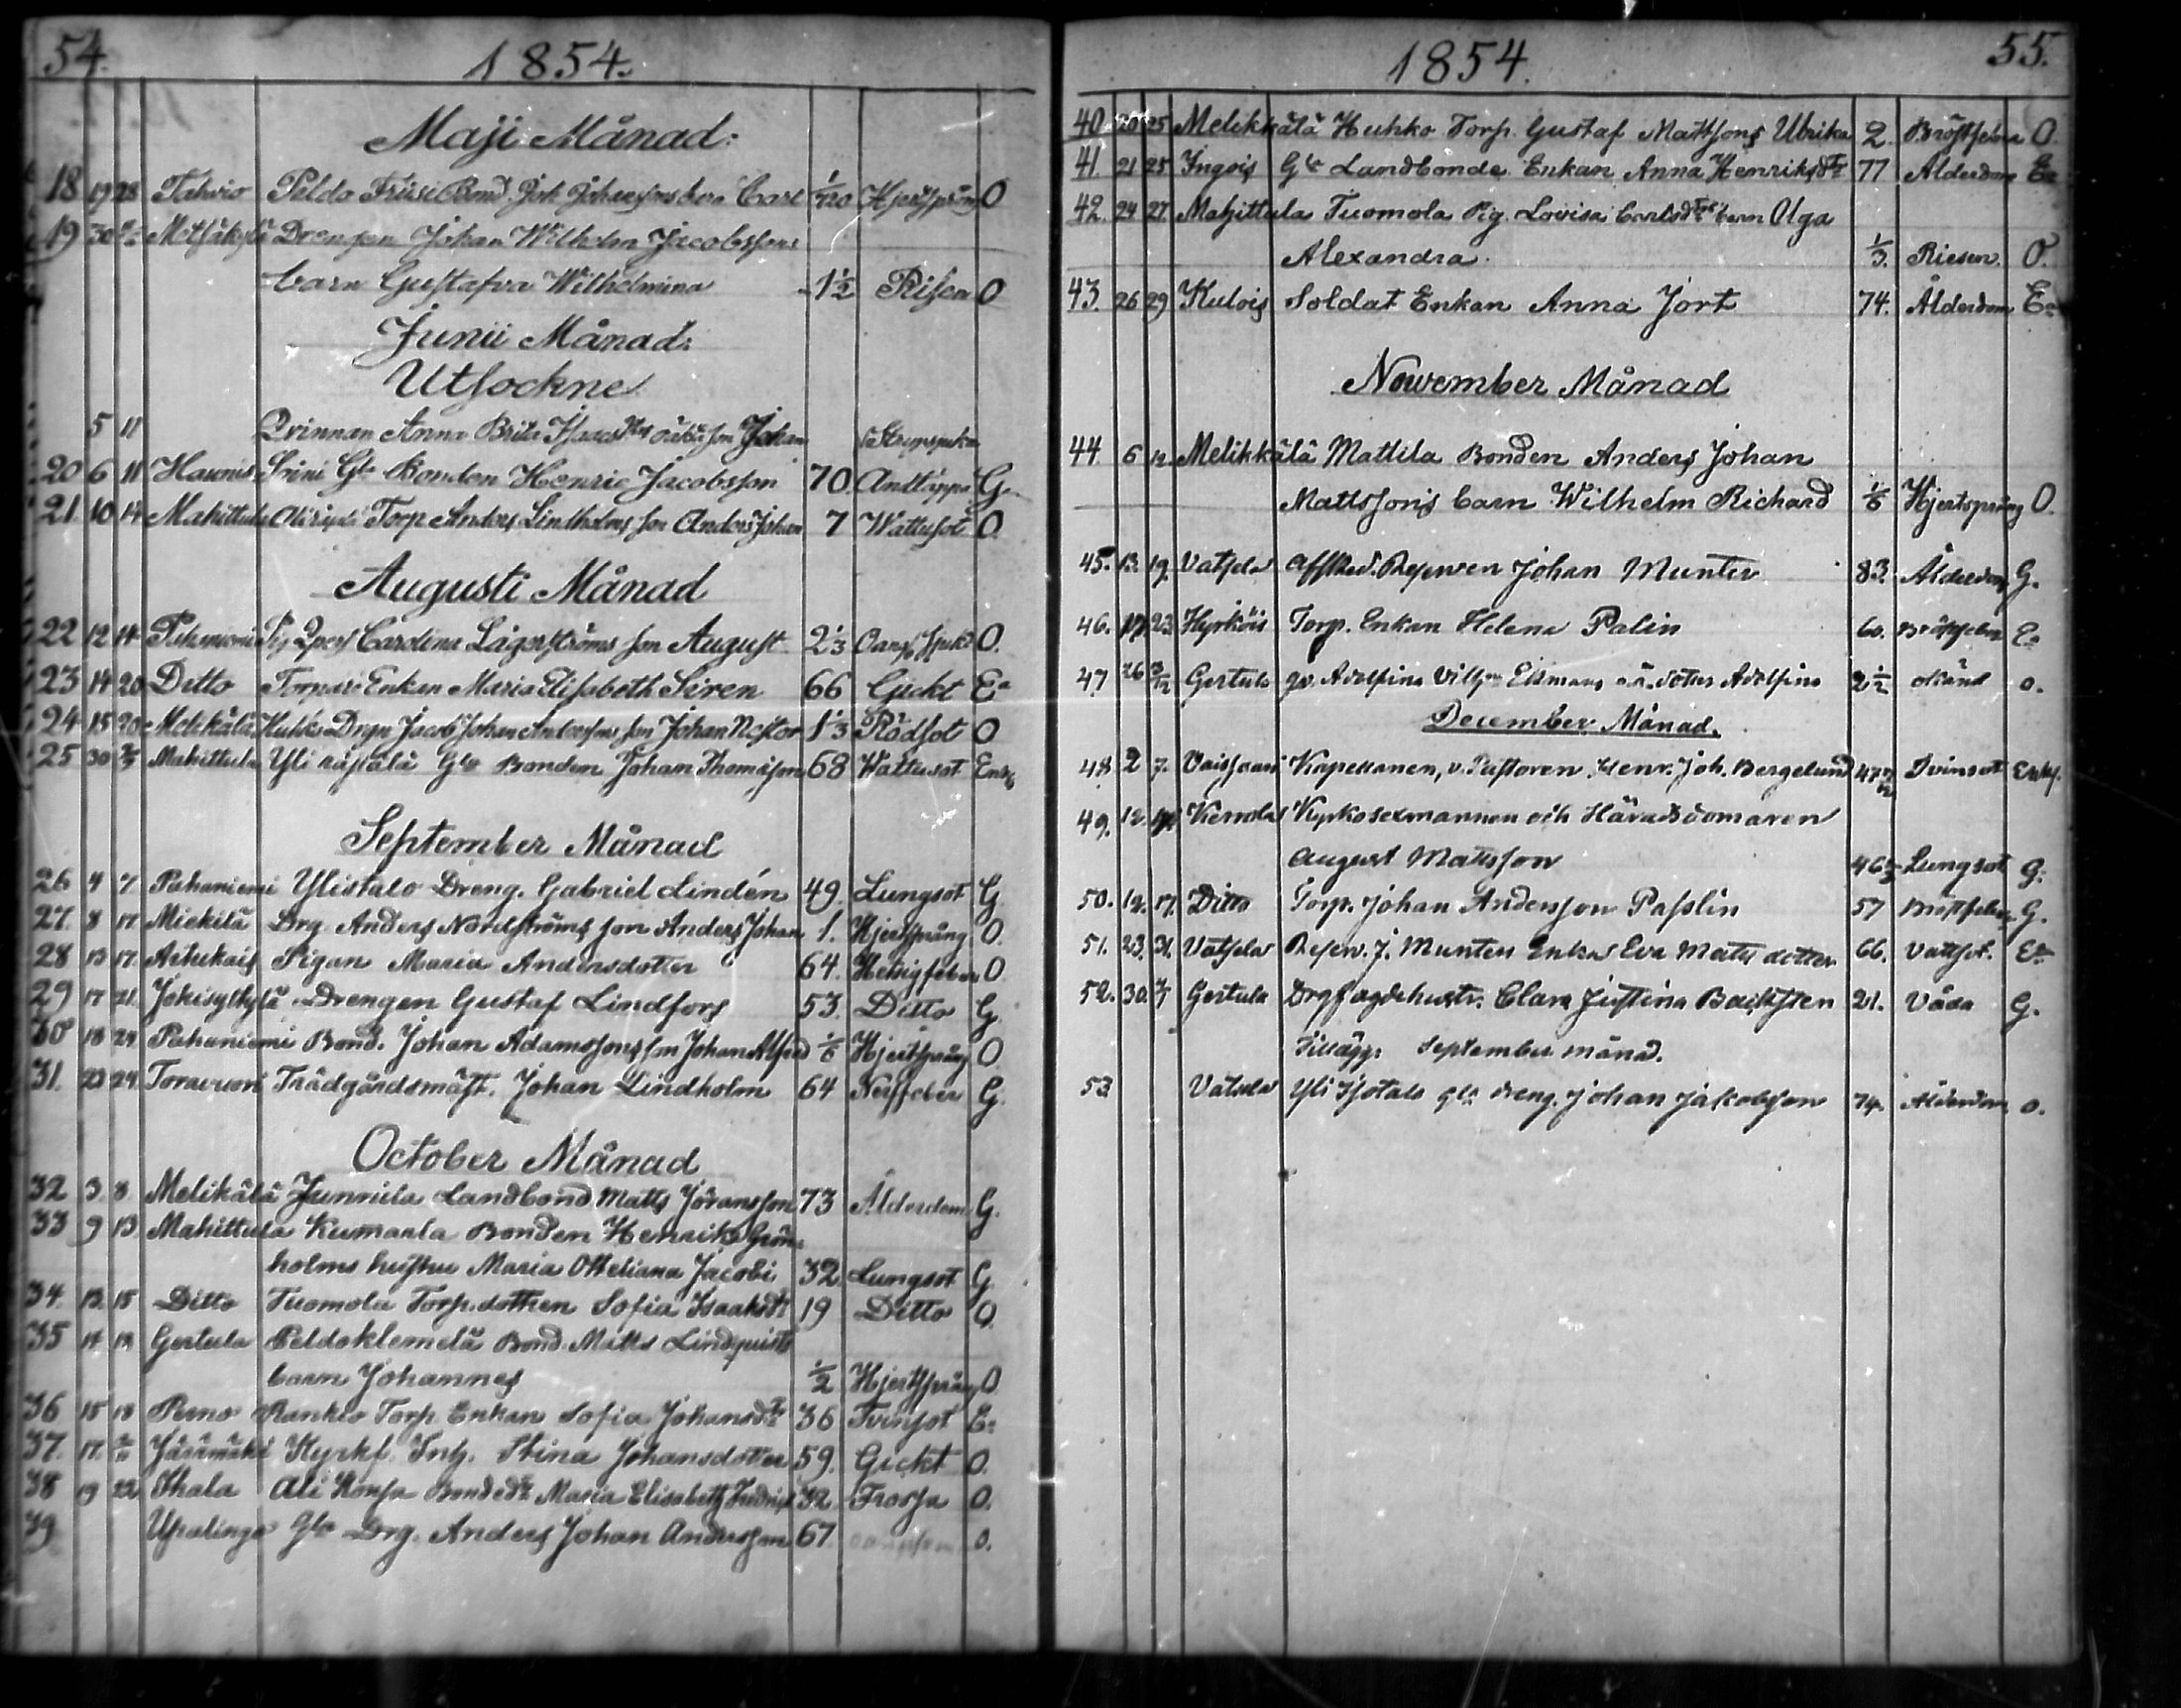 54.
1854.
Maji Månad:
18 19 28 Tahvio Peldo Friisi Bond. Joh Johanssons barn Carl 1/20 Hjertsprång O
19 30 Metsäkylä Drengen Johan Wilhelm Jacobssons
barn Gustafva Wilhelmina 1½ Risen O
Junii Månad:
Utsockne
5 11 Qvinnan Anna Brita Isaacs son Johan
20 6 11 Haunis Gle Bonden Henric Jacobsson 70 Andtäppa G.
21. 10 14 Mahittula Torp Anders Lindholms son Anders Johan 7 Wattusot O
Augusti Månad
22 12 14 Pahaniemi Pig Carolina Lagerströms son August 2⅓ O.
23 14 20 Ditto Enkan Maria Elisabeth Siren 66 Gickt Ea
24 15 20 Melikälä Huhko Drgn Jacob Johan Anderssons son Johan Nestor 1⅓ Rödsot O
25 30 Mahittula Yli Gle Bonden Johan Thomasson 68 Wattusot Enkl
September Månad
26 4 7 Pahaniemi Ylistalo Dreng. Gabriel Lindén 49. Lungsot G
27. 8 17. Mickilä Drg. Anders Nordströms son Anders Johan 1. Hjertsprång O.
28 13 17. Pigan Maria Andersdotter 64. Hetsigfeber O
29 17 21. Jokisyltylä Drengen Gustaf Lindfors 53. Ditto G
30 18 24 Pahaniemi Bond. Johan Adamssons son Johan Alfred 1/6 Hjertsprång O
31. 23 24. Trädgårdsmäst. Johan Lindholm 64 Nerffeber G.
October Månad
32 3. 8 Melikälä Junnila Landbond Matts Jöransson 73 Ålderdom G.
33 9 13 Mahittula Kumaala Bonden Henrik Grön-
holms hustru Maria Otteliana Jacobi 32. Lungsot G
34. 13. 15 Ditto Tuomola Torp.dottren Sofia Isaaksdr 19 Ditto O.
35 14 19 Gertula Peldoklemelä Bond. Matts Lindquists
barn Johannes ½ Hjertsprång O
36 15 18 Perno Torp Enkan Sofia Johansdtr 36 Tvinsot E.
37. 17. Järämäki Kyrkf. Inh. Stina Johansdotter 59. Gickt O.
38 19 22 Ihala Ali Konsa Bondedtr Maria Elisabeth 32 Frossa O.
39 Upalinga Gle Drg. Anders Johan Andersson 67 O.
1854.
55.
40 20 25 Melikkälä Huhko Torp. Gustaf Mattsons Ulrika 2. Bröstfeber O.
41. 21 25 Ingois Gle Landbonde Enkan Anna Henriksdtr 77 Ålderdom Ea
42. 24 27 Mahittula Tuomola Pig. Lovisa Carlsdtrs barn Olga
Alexandra. 1/3. Riesen. O.
43. 26 29 Kulois Soldat Enkan Anna Jort 74. Ålderdom Ea
November Månad
44. 6 12 Melikkälä Mattila Bonden Anders Johan
Mattssons barn Wilhelm Richard 1/6 Hjertsprång O.
45. 13. 19. Vatsela Affsked. Johan Munter 83. Ålderdom G.
46. 17 23. Hyrköis Torp. Enkan Helena Palin 60. Bröstfeber Ea
47 26 3/12 Gertula qv. Adolfina Eksmans o.ä. dotter Adolfina 2½ okänd o.
December Månad.
48. 2 7. Vaissaari Kapellanen, v. Pastoren. Henr. Joh. Bergelund 47 Tvinsot
49. 12. Kerrola Kyrkosexmannen och Häradsdomaren
August Mattsson 46½ Lungsot G.
50. 12. 17. Ditto Torp. Johan Andersson Passlin 57 Bröstfeber G.
51. 23. 31. Vatsela Reserv. J. Munters Enka Eva Mats dotter 66. Vattsot. Ea
52. 30. 4/1 Gertula Clara Justina 21. Våda G.
Tillägg September månad.
53 Vatsela Yli Isotalo gle dreng. Johan Jakobsson 74. Ålderdom o.